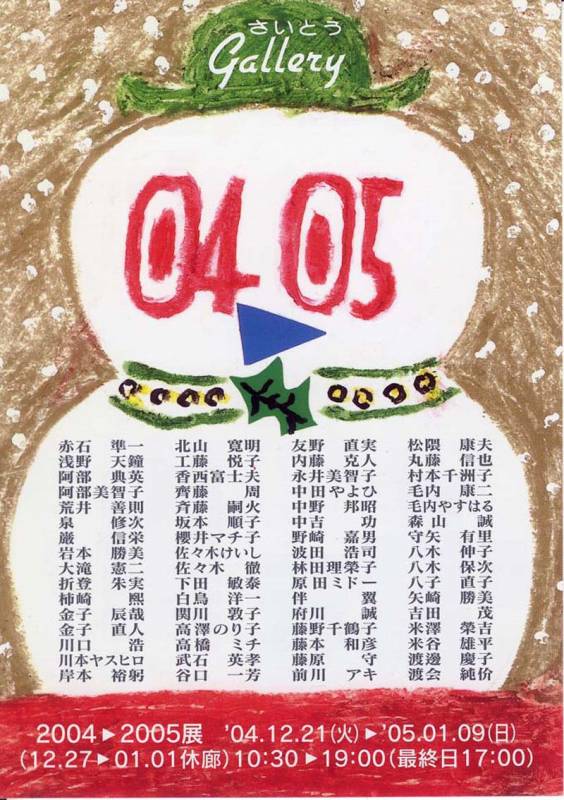 さいとう
Gallery
04 05
赤石 準一
浅野 天鐘
阿部 典英
阿部美智子
荒井 善則
泉 修次
巌 信栄
岩本 勝美
大滝 憲二
折登 朱実
柿崎 熙
金子 辰哉
金子 直人
川口 浩
川本ヤスヒロ
岸本 裕躬
北山 寛明
工藤 悦子
香西富士夫
齊藤 周
斉藤 嗣火
坂本 順子
櫻井マチ子
佐々木けいし
佐々木 徹
下田 敏泰
白鳥 洋一
関川 敦子
高澤のり子
高橋 ミチ
武石 英孝
谷口 一芳
友野 直実
内藤 克人
永井美智子
中田やよひ
中野 邦昭
中吉 功
野崎 嘉男
波田 浩司
林田理榮子
原田ミドー
伴 翼
府川 誠
藤野千鶴子
藤本 和彦
藤原 守
前川 アキ
松隈 康夫
丸藤 信也
村本千洲子
毛内 康二
毛内やすはる
森山 誠
守矢 有里
八木 伸子
八木 保次
八子 直子
矢崎 勝美
吉田 茂
米澤 榮吉
米谷 雄平
渡邊 慶子
渡会 純价
2004▶2005展 '04.12.21(火)▶'05.01.09(日)
(12.27▶01.01休廊)10:30▶19:00(最終日17:00)